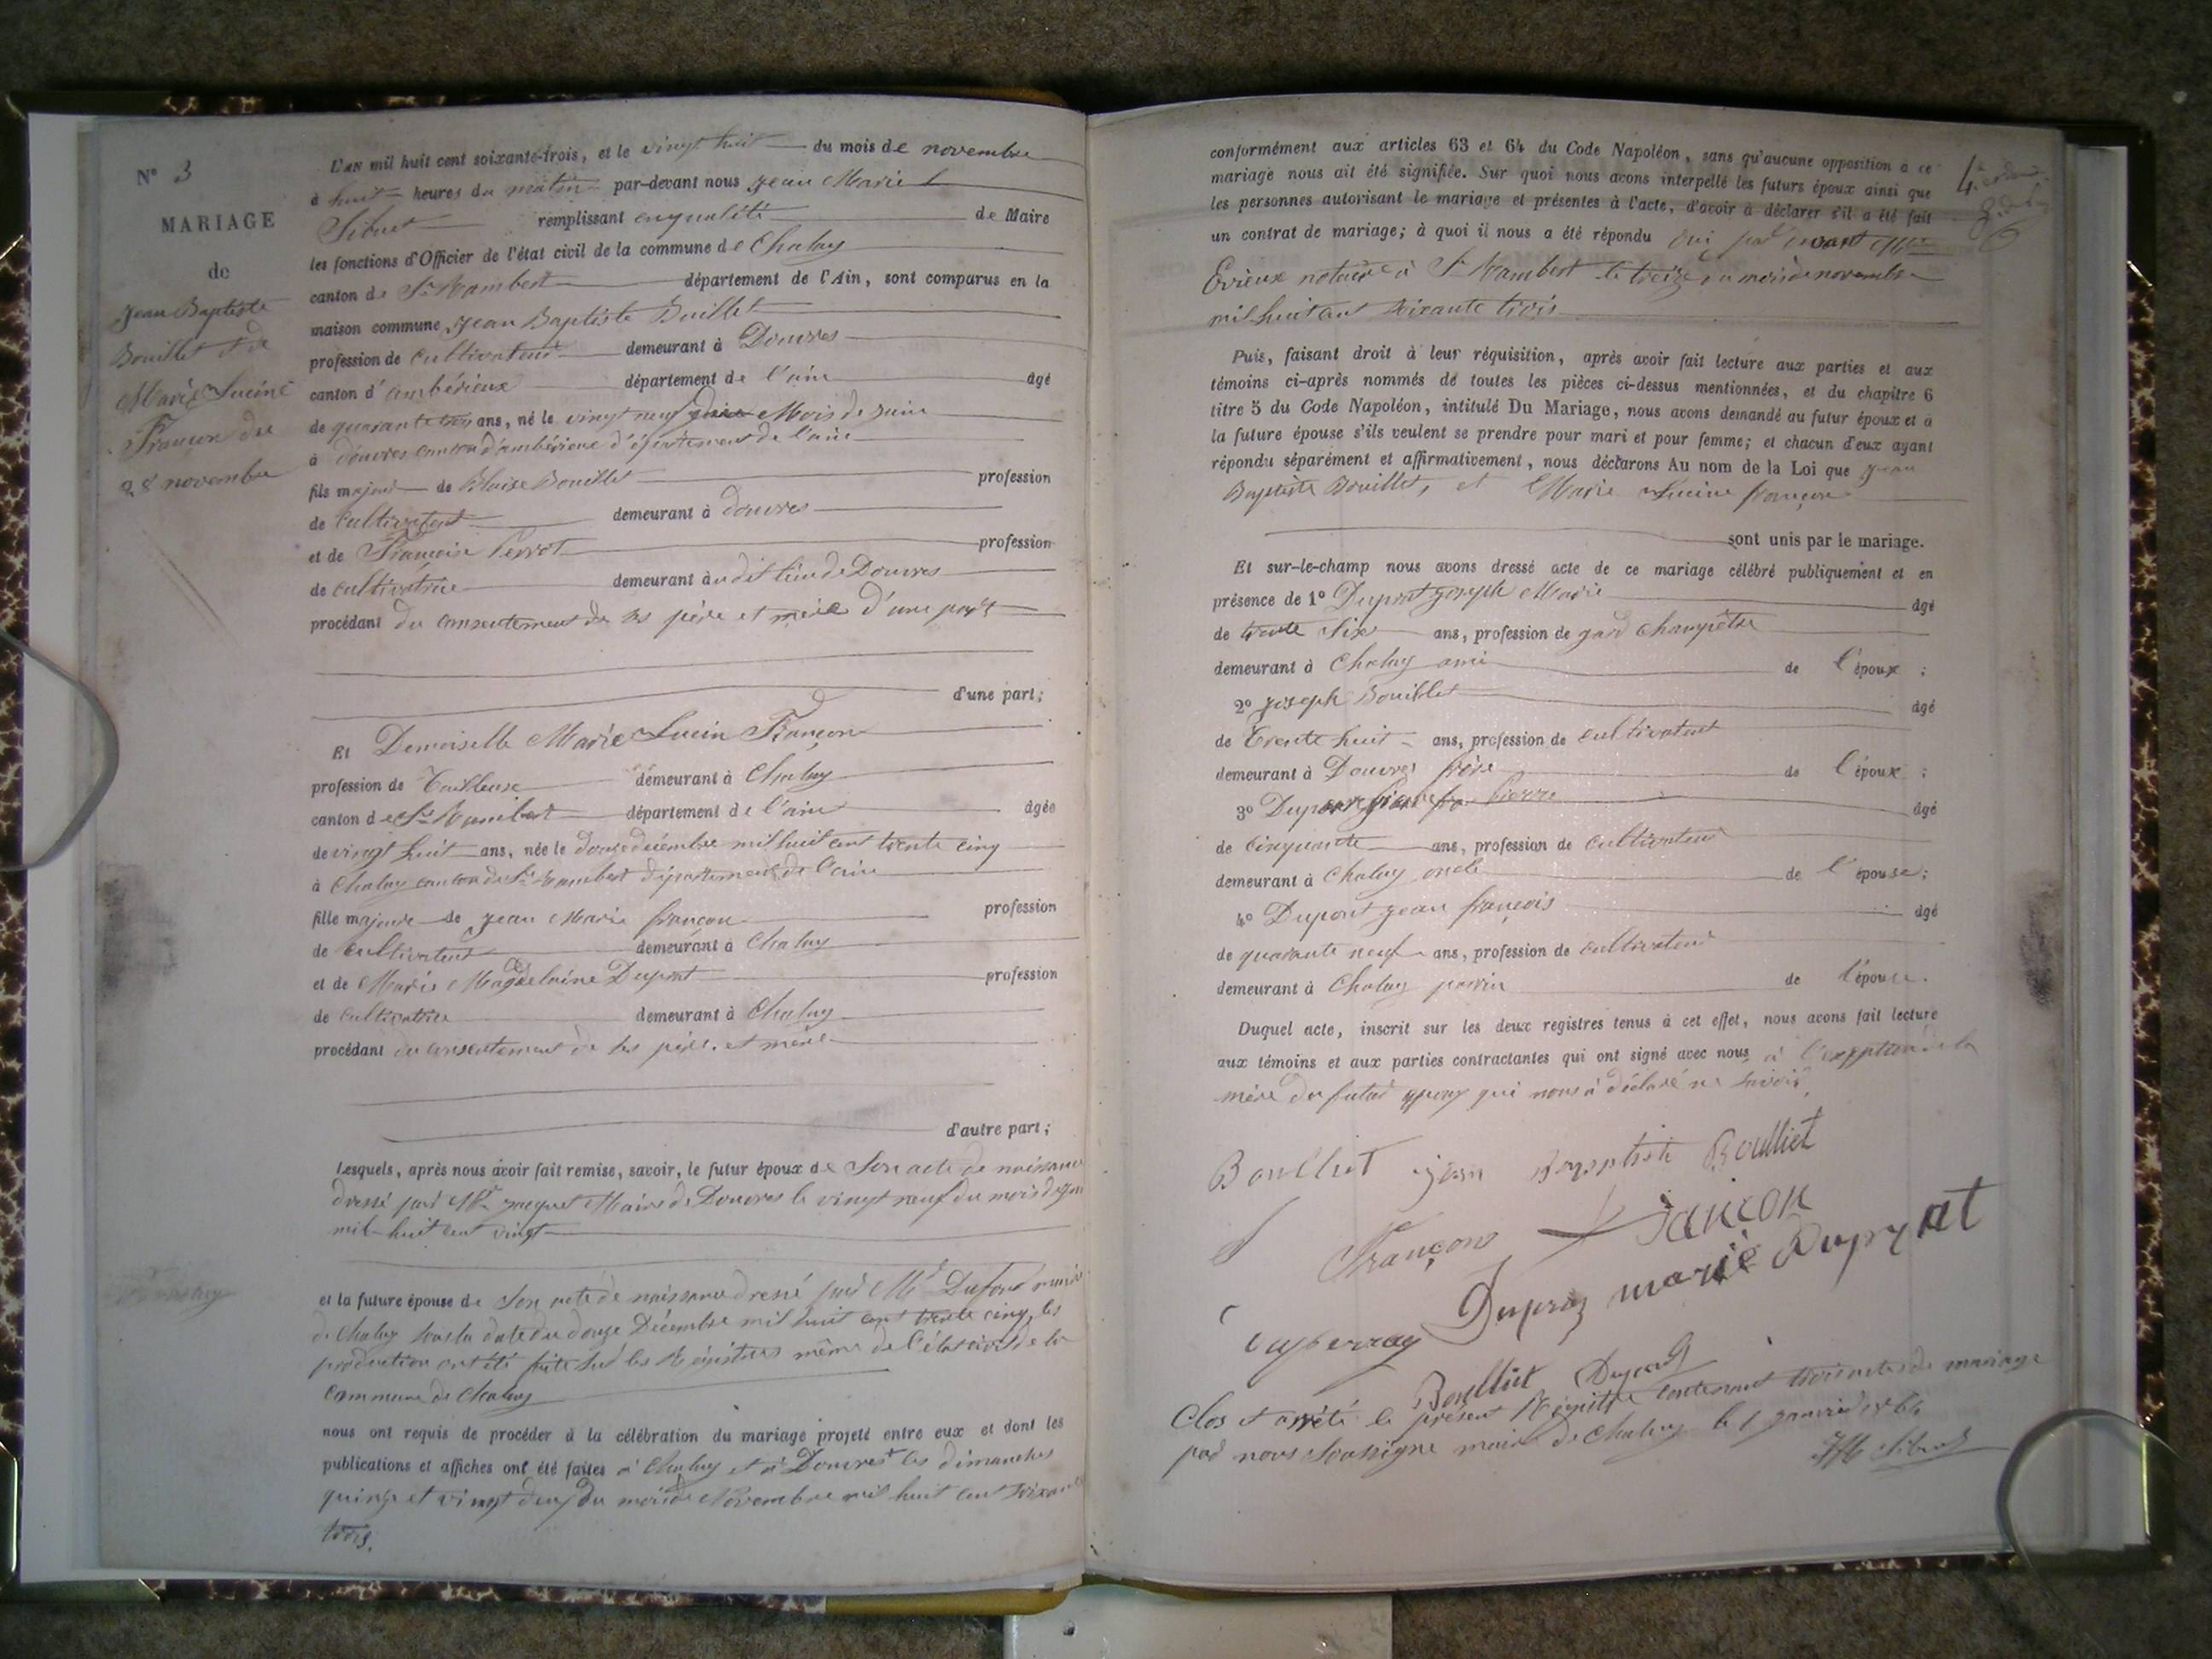 N° 3
MARIAGE
de
Jean Baptiste
Bouillet et de
Marie Lucine
Françon du
28 novembre
L'AN mil huit cent soixante-trois, et le vingt huit du mois de novembre
à huit heures du matin par-devant nous Jean Marie
Sibuet remplissant en qualité de Maire
les fonctions d'Officier de l'état civil de la commune de Chaley
canton de St Rambert département de l'Ain, sont comparus en la
maison commune Jean Baptiste Bouillet
profession de cultivateur demeurant à Douvres
canton d'ambérieux département de l'ain âgé
de quarante trois ans, né le vingt neuf Mois de juin
à douvres canton d'ambérieux d'épartement de l'ain
fils majeur de Blaise Bouillet profession
de cultivateur demeurant à douvres
et de Françoise Perrot profession
de cultivatrice demeurant à udit lieu de Douvres
procédant du consentement de ses père et mère d'une part
d'une part;
Et Demoiselle Marie Lucin Françon
profession de Tailleuse demeurant à Chaley
canton de St Rambert département de l'ain âgée
de vingt huit ans, née le douze décembre mil huit cent trente cinq
à Chaley canton de St Rambert département de l'ain
fille majeure de Jean Marie françon profession
de cultivateur demeurant à Chaley
et de Marie Magdelaine Dupont profession
de cultivatrice demeurant à Chaley
procédant du consentement de ses père et mère
d'autre part;
Lesquels, après nous avoir fait remise, savoir, le futur époux de Son acte de naissance
dressé par Mr Jacquet Maire de Douvres le vingt neuf du mois de juin
mil huit cent vingt
et la future épouse de Son acte de naissance dressé par Mr Dufour maire
de Chaley sous la date du douze Décembre mil huit cent trente cinq, les
production ont été faite sur les Régistres même de l'état civil de la
commune de Chaley
nous ont requis de procéder à la célébration du mariage projeté entre eux et dont les
publications et affiches ont été faites à Chaley et à Douvres les dimanches
quinze et vingt deux du mois de Novembre mil huit cent soixante
trois.
conformément aux articles 63 et 64 du Code Napoléon, sans qu'aucune opposition à ce
mariage nous ait été signifiée. Sur quoi nous avons interpellé les futurs époux ainsi que
les personnes autorisant le mariage et présentes à l'acte, d'avoir à déclarer s'il a été fait
un contrat de mariage; à quoi il nous a été répondu Oui par devant
Evieux notaire à St Rambert le treize du mois de novembre
mil huit cent soixante trois
Puis, faisant droit à leur réquisition, après avoir fait lecture aux parties et aux
témoins ci-après nommés de toutes les pièces ci-dessus mentionnées, et du chapitre 6
titre 5 du Code Napoléon, intitulé Du Mariage, nous avons demandé au futur époux et à
la future épouse s'ils veulent se prendre pour mari et pour femme; et chacun d'eux ayant
répondu séparément et affirmativement, nous déclarons Au nom de la Loi que Jean
Baptiste Bouillet, et Marie Lucine françon
sont unis par le mariage.
Et sur-le-champ nous avons dressé acte de ce mariage célébré publiquement et en
présence de 1° Dupont Joseph Marie âgé
de trente Six ans, profession de gard Champêtre
demeurant à Chaley ami de l'époux;
2° Joseph Bouillet âgé
de Trente huit ans, profession de cultivateur
demeurant à Douvres frère de l'époux;
3° Dupont Pierre âgé
de cinquante ans, profession de cultivateur
demeurant à Chaley oncle de l'épouse;
4° Dupont Jean françois âgé
de quarante neuf ans, profession de cultivateur
demeurant à Chaley parrin de l'épouse.
Duquel acte, inscrit sur les deux registres tenus à cet effet, nous avons fait lecture
aux témoins et aux parties contractantes qui ont signé avec nous à l'exeption de la
mère du futur epoux qui nous à déclaré ne savoir,
Boulliet Jean Bapptiste Boulliet
Françons Françon
Dupraz marie
Boulliet
Clos et arrêté le présent Régistre contenant trois actes de mariage
par nous Soussigné maire de Chaley le 1 janvier 1864
JM Sibuet